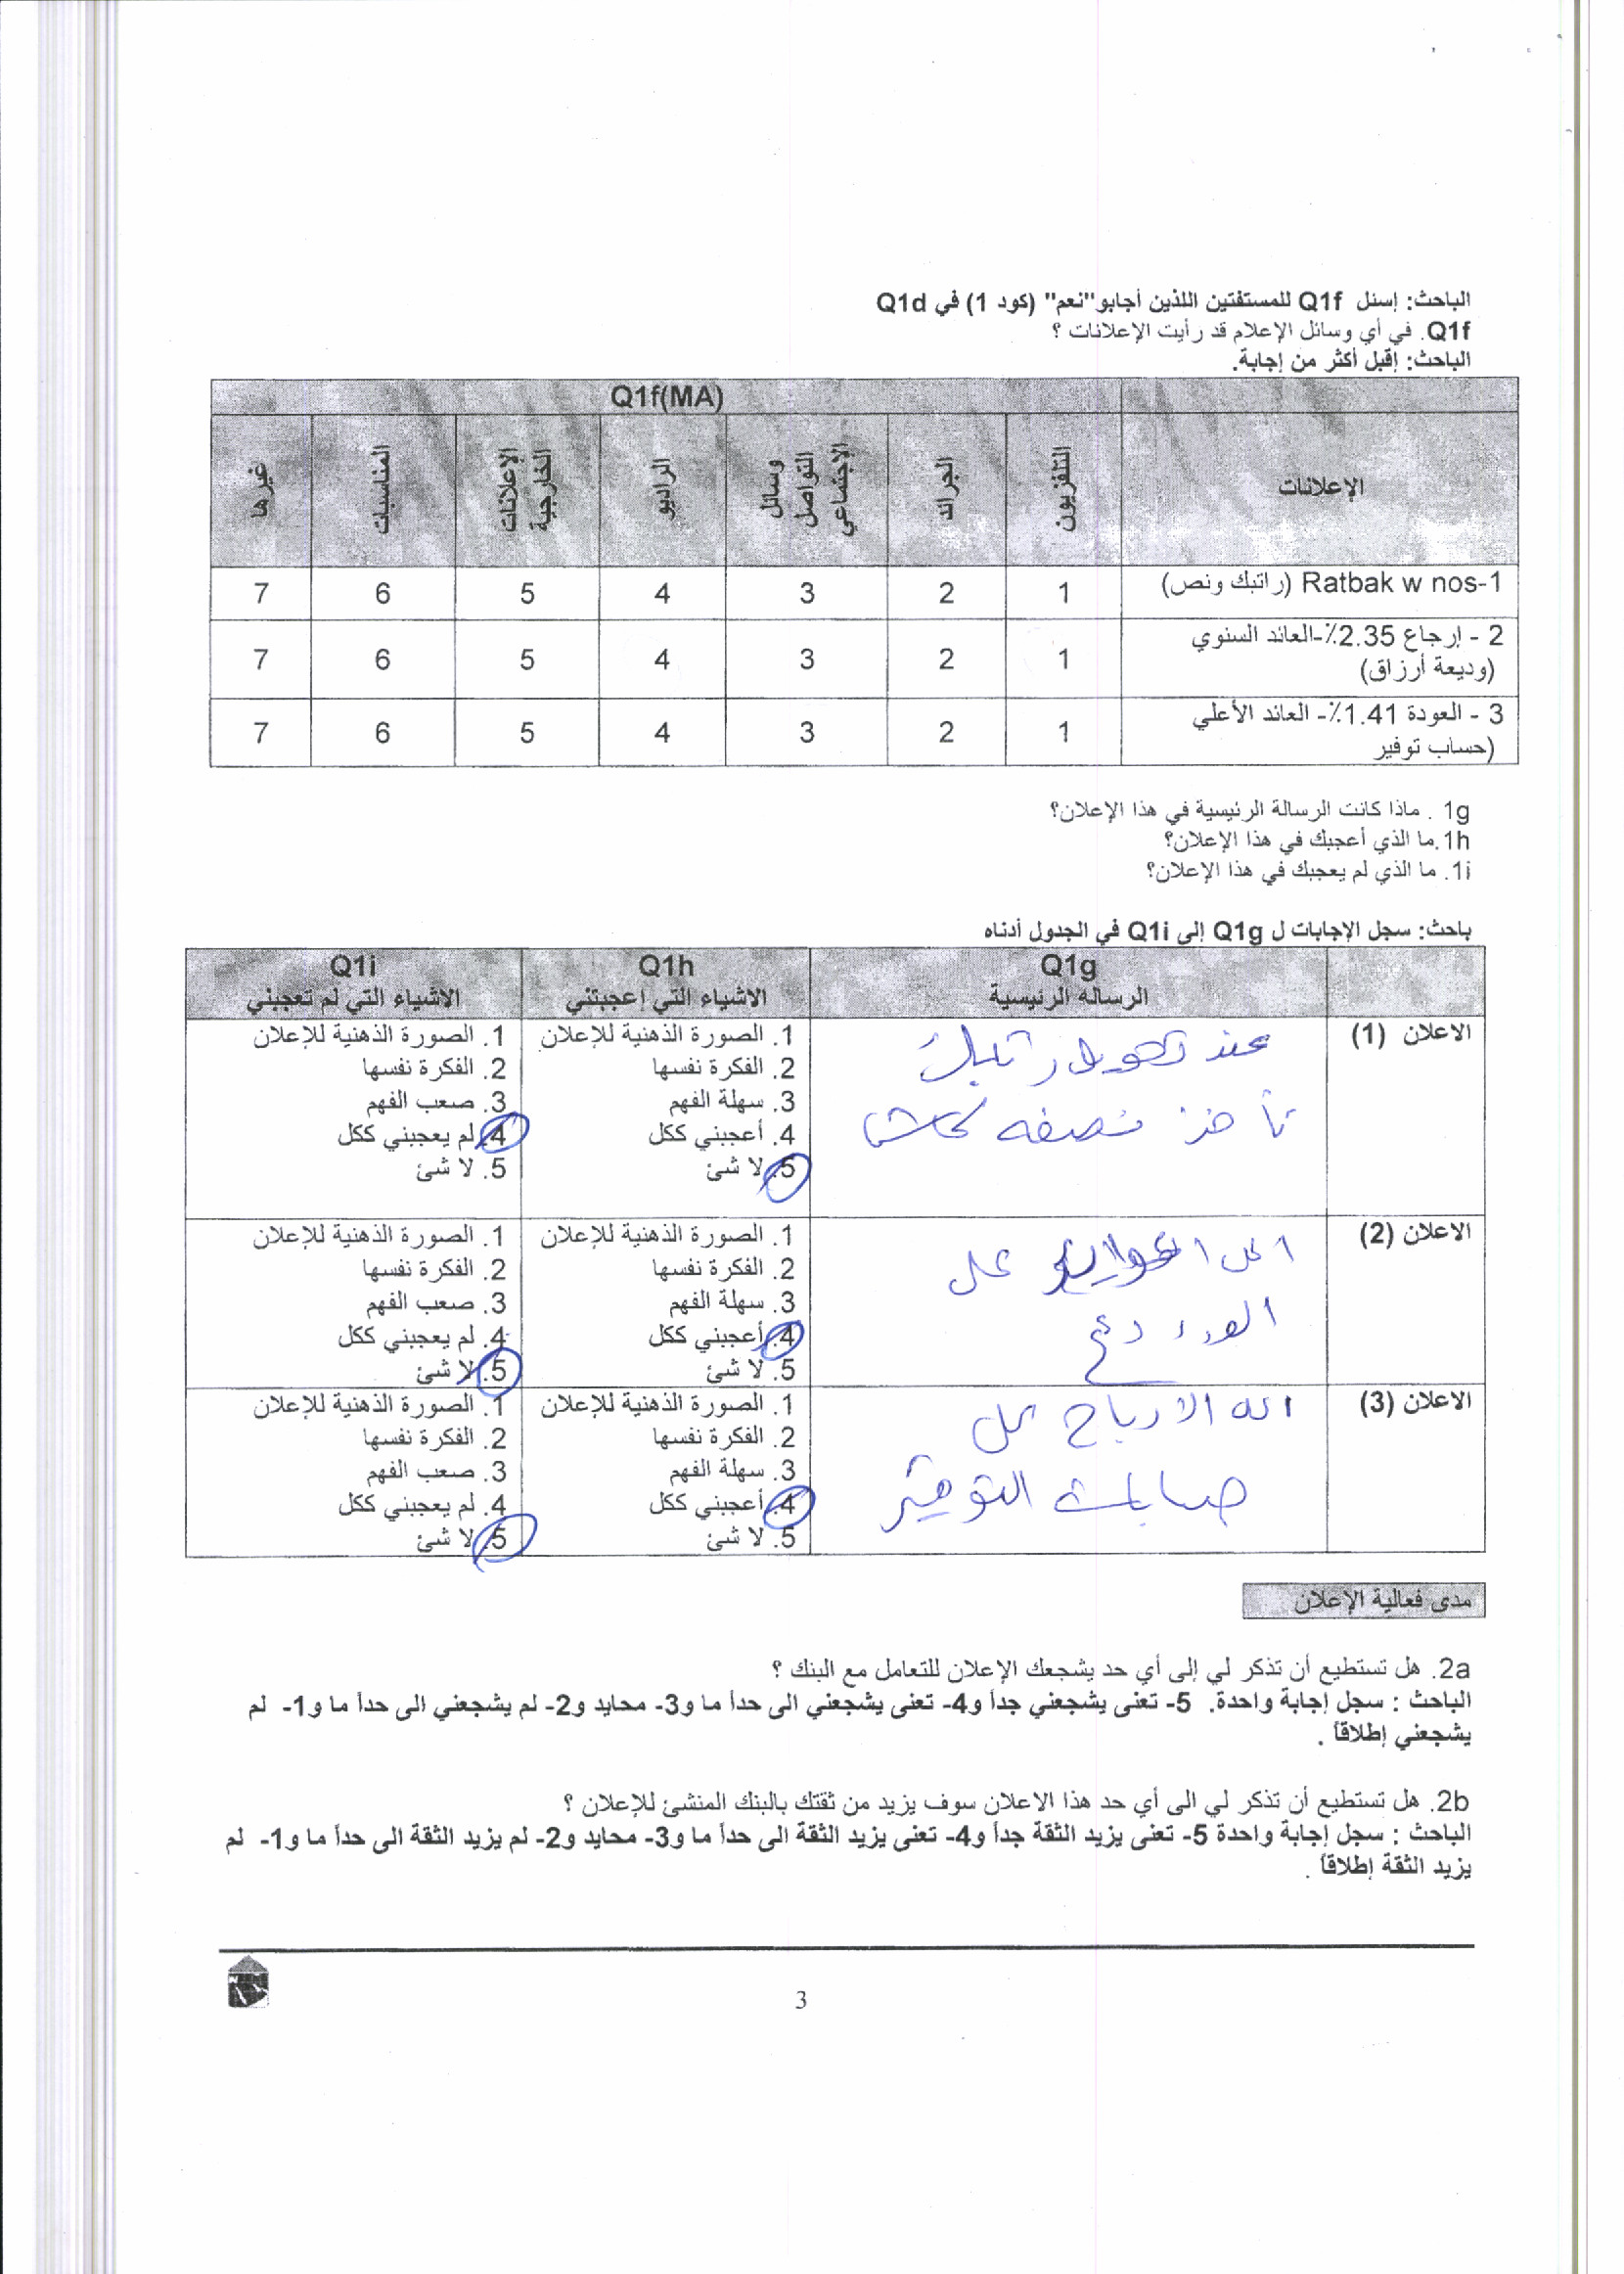 الباحث: إسئل Q1f للمستفتين اللذين أجابو"نعم" (كود 1) في Q1d
Q1f. في أي وسائل الإعلام قد رأيت الإعلانات ؟
الباحث: إقبل أكثر من إجابة.
Q1f(MA)
الإعلانات التلفزيون الجرائد وسائل التواصل الاجتماعي الراديو الإعلانات الخارجية المناسبات غيرها
Ratbak w nos-1 (راتبك ونص) 1 2 3 4 5 6 7
2 - إرجاع 2.35٪-العائد السنوي
(وديعة أرزاق) 1 2 3 4 5 6 7
3 - العودة 1.41٪- العائد الأعلي
(حساب توفير 1 2 3 4 5 6 7
1g . ماذا كانت الرسالة الرئيسية في هذا الإعلان؟
1h.ما الذي أعجبك في هذا الإعلان؟
1i. ما الذي لم يعجبك في هذا الإعلان؟
باحث: سجل الإجابات ل Q1g إلى Q1i في الجدول أدناه
Q1g Q1h Q1i
الرساله الرئيسية الاشياء التي اعجبتني الاشياء التي لم تعجبني
الاعلان (1)
عند تحويل راتبك
تأخذ نصفه كاش
1. الصورة الذهنية للإعلان
2. الفكرة نفسها
3. سهلة الفهم
4. أعجبني ككل
5. لا شئ
1. الصورة الذهنية للإعلان
2. الفكرة نفسها
3. صعب الفهم
4. لم يعجبني ككل
5. لا شئ
الاعلان (2)
على
1. الصورة الذهنية للإعلان
2. الفكرة نفسها
3. سهلة الفهم
4. أعجبني ككل
5. لا شئ
1. الصورة الذهنية للإعلان
2. الفكرة نفسها
3. صعب الفهم
4. لم يعجبني ككل
5. لا شئ
الاعلان (3)
الارباح على
حسابات التوفير
1. الصورة الذهنية للإعلان
2. الفكرة نفسها
3. سهلة الفهم
4. أعجبني ككل
5. لا شئ
1. الصورة الذهنية للإعلان
2. الفكرة نفسها
3. صعب الفهم
4. لم يعجبني ككل
5. لا شئ
مدى فعالية الإعلان
2a. هل تستطيع أن تذكر لي إلى أي حد يشجعك الإعلان للتعامل مع البنك ؟
الباحث : سجل إجابة واحدة. 5- تعنى يشجعني جداً و4- تعنى يشجعني الى حداً ما و3- محايد و2- لم يشجعني الى حداً ما و1- لم
يشجعني إطلاقاً .
2b. هل تستطيع أن تذكر لي الى أي حد هذا الاعلان سوف يزيد من ثقتك بالبنك المنشئ للإعلان ؟
الباحث : سجل إجابة واحدة 5- تعنى يزيد الثقة جداً و4- تعنى يزيد الثقة الى حداً ما و3- محايد و2- لم يزيد الثقة الى حداً ما و1- لم
يزيد الثقة إطلاقاً .
3